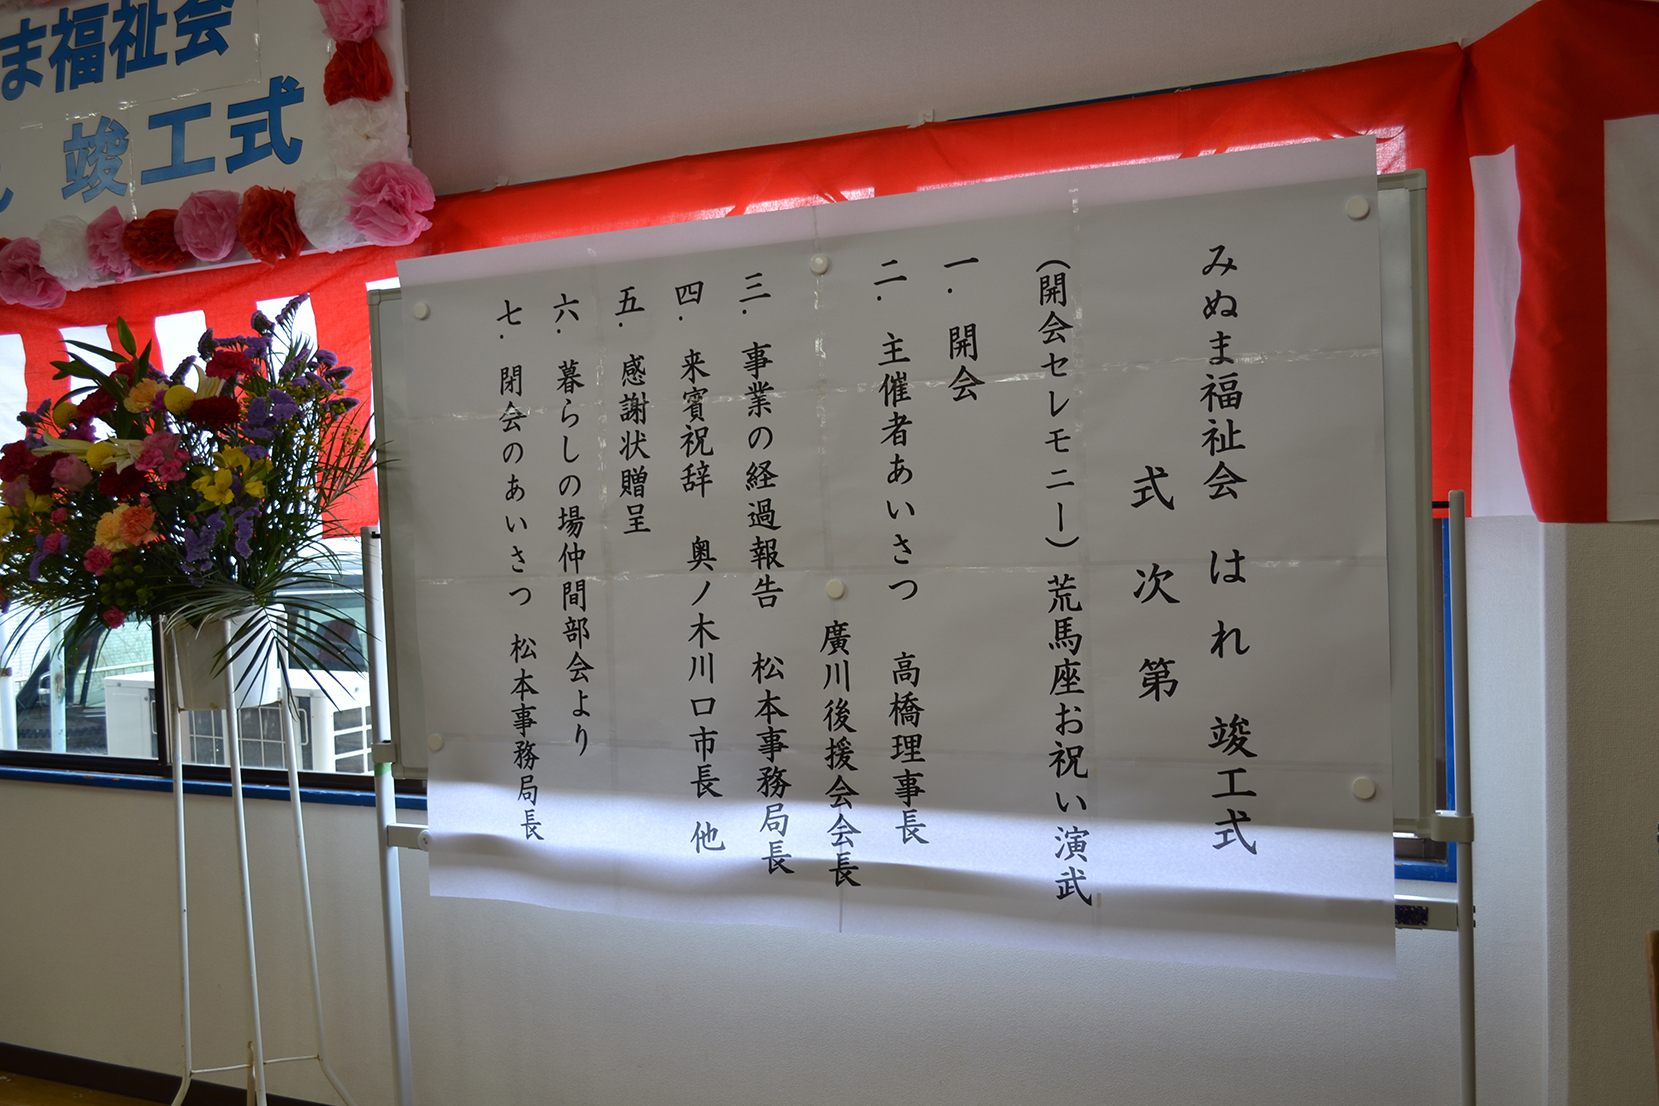 ま福祉会
竣工式
みぬま福祉会　はれ　竣工式
式次第
（開会セレモニー）荒馬座お祝い演武
一．開会
二．主催者あいさつ　高橋理事長
廣川後援会会長
三．事業の経過報告　松本事務局長
四．来賓祝辞　奥ノ木川口市長　他
五．感謝状贈呈
六．暮らしの場仲間部会より
七．閉会のあいさつ　松本事務局長